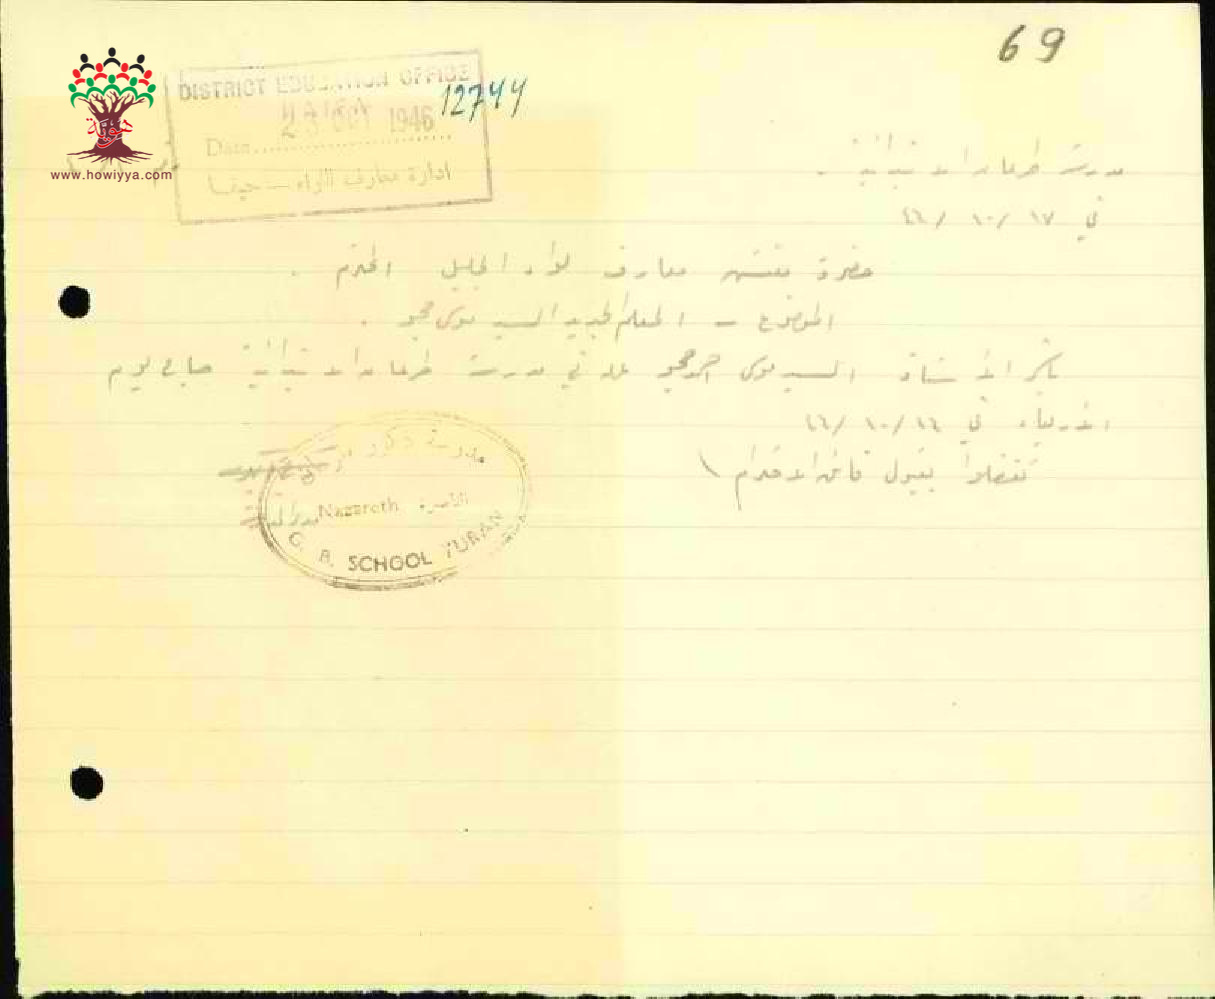 69
DISTRICT EDUCATION OFFICE
HAIFA
23 OCT 1946
12744
Date
ادارة معارف اللواء — حيفا
هوية
www.howiyya.com
مدرسة طرعان الابتدائية
في ١٧ / ١٠ / ٤٦
حضرة مفتش معارف لواء الجليل المحترم .
الموضوع – المعلم الجديد السيد موسى
باشر الاستاذ السيد موسى احمد عمله في مدرسة طرعان الابتدائية صباح يوم
الاربعاء في ١٦ / ١٠ / ٤٦
تفضلوا بقبول فائق الاحترام
مدرسة ذكور
Nazareth الناصرة
G. B. SCHOOL TURAN